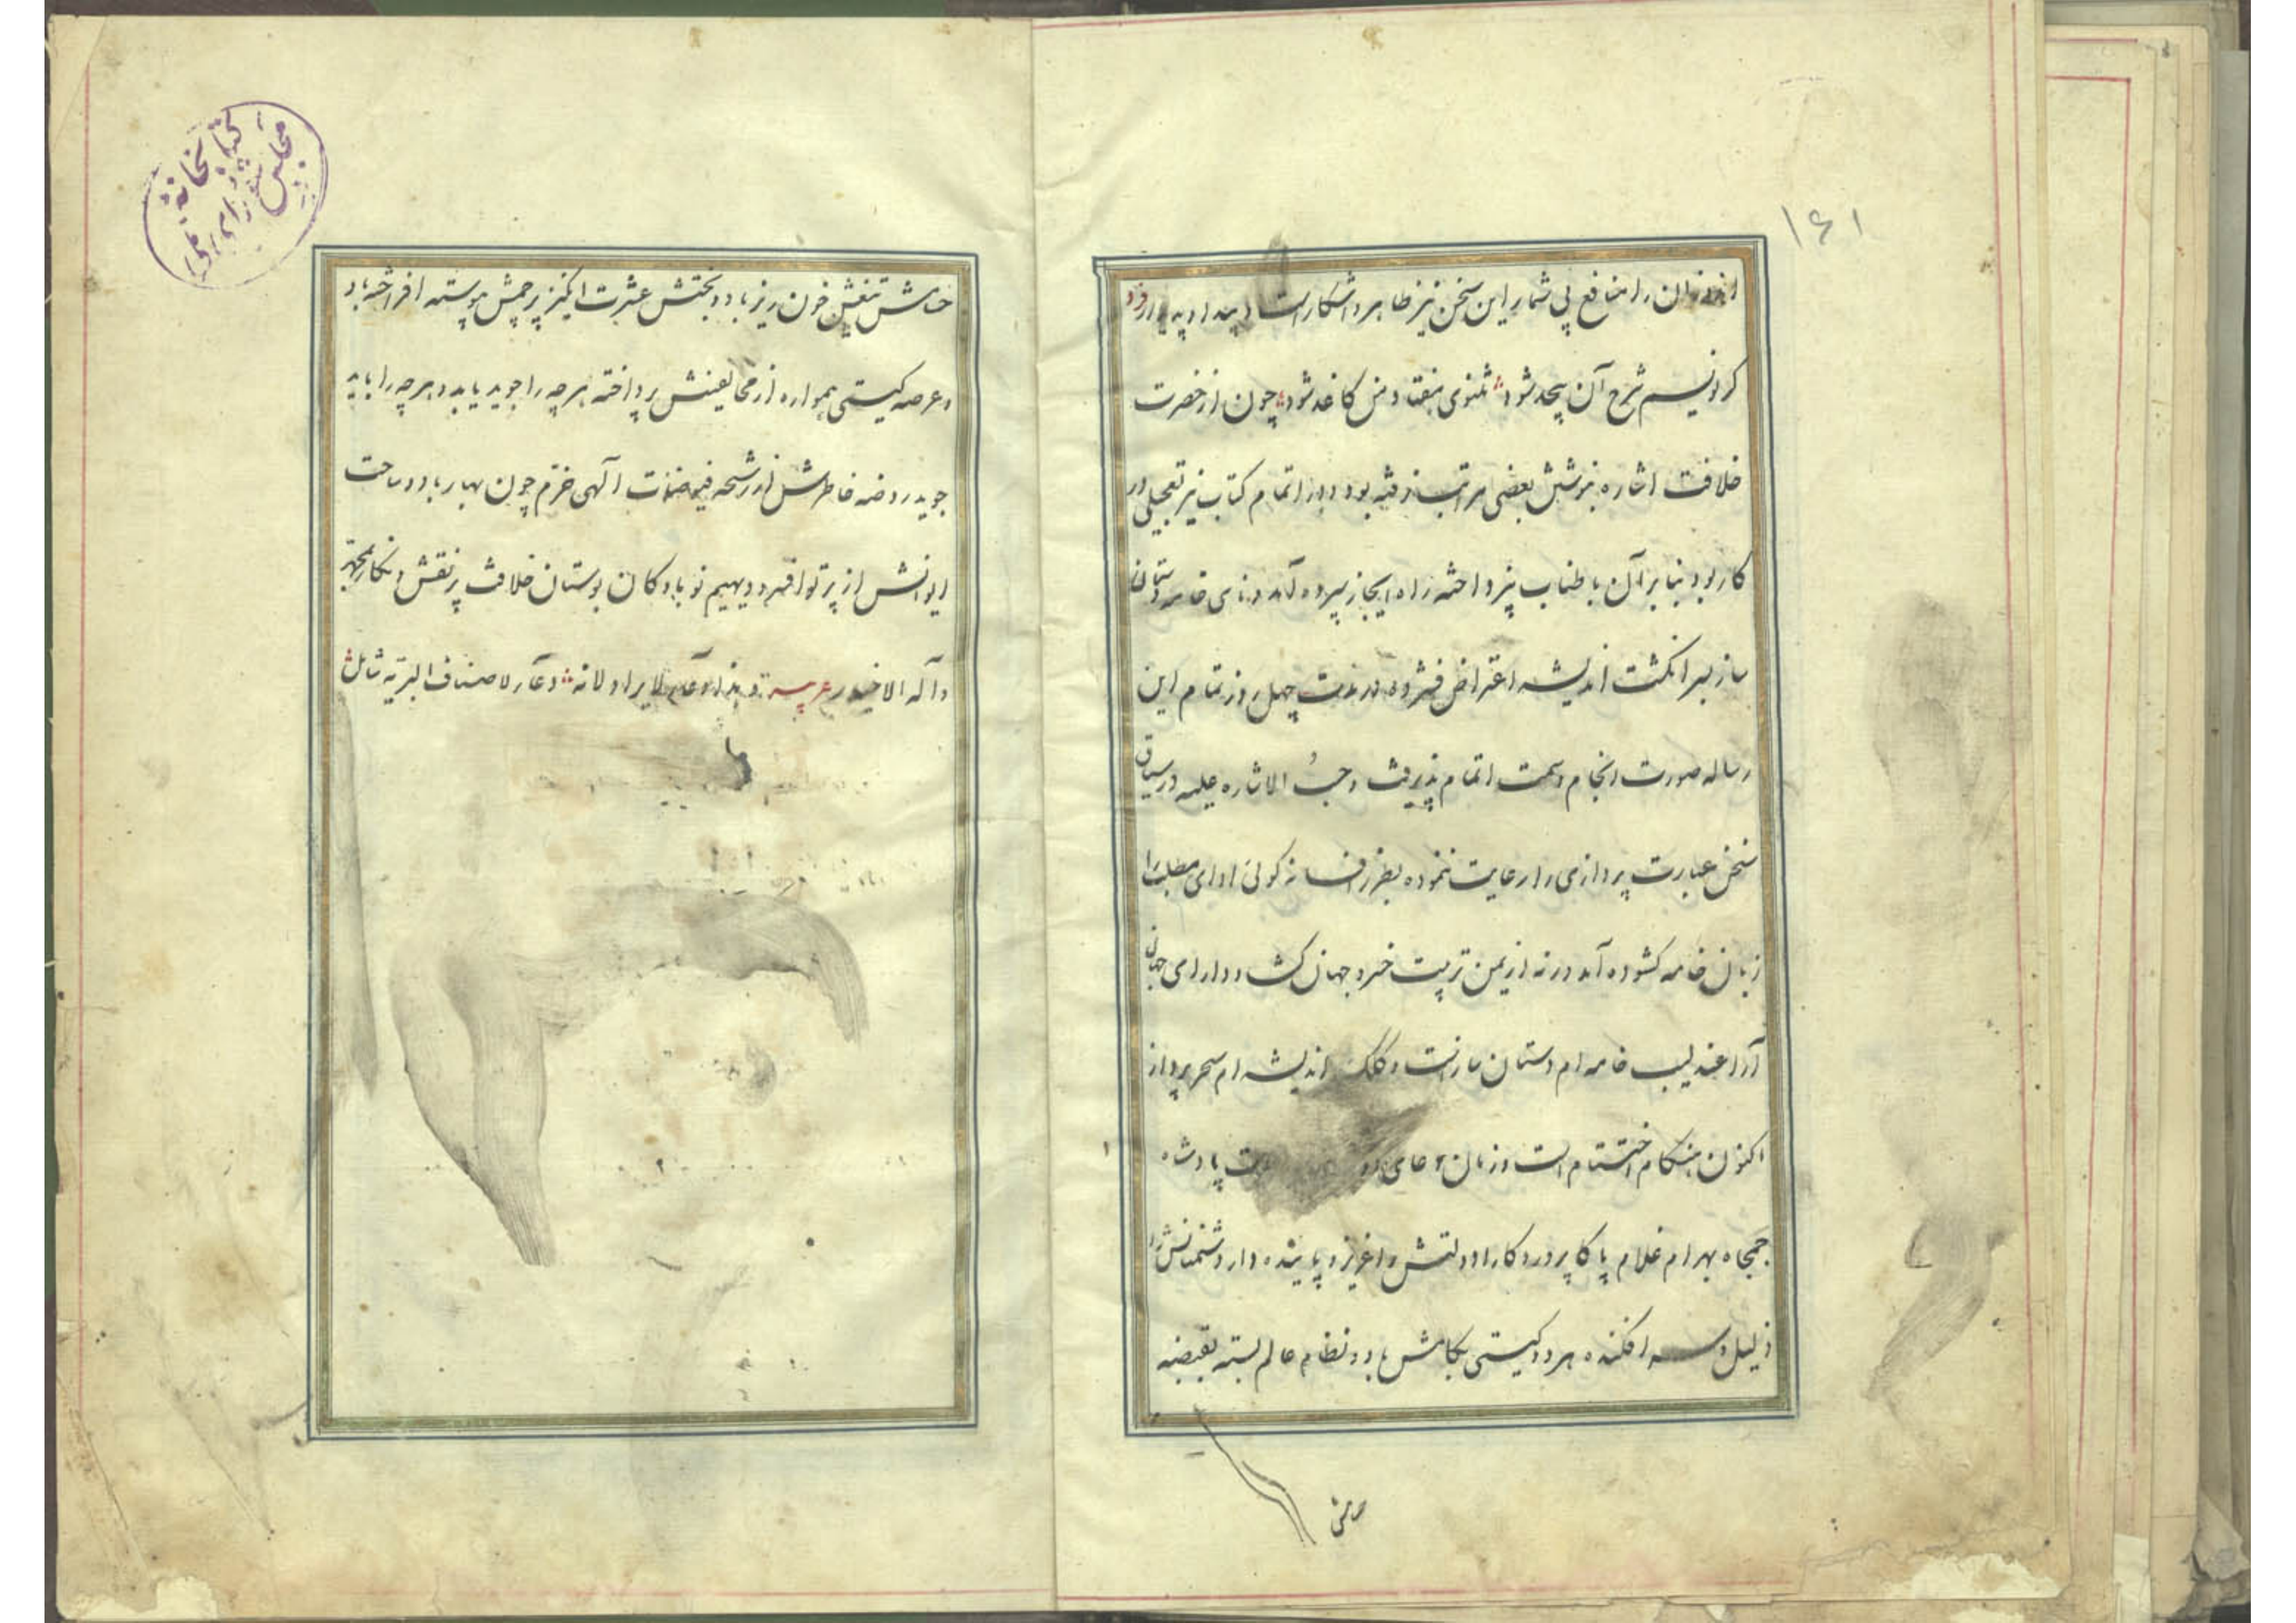 ۱۶۱
را منافع بی شمار این سخن نیز ظاهر و آشکار است فرد
کر نویسم شرح آن بیحد شود مثنوی هفتاد من کاغذ شود چون از حضرت
خلافت اشاره بنوشتن بعضی مراتب رفته بود و در اتمام کتاب نیز تعجیلی در
کار بود بنا بر آن باطناب نپرداخته راه ایجاز سپرده آمد خامه دستان
ساز بسر انکشت اندیشه اعتراض فشرده در مدت چهل روز تمام این
رساله صورت انجام و سمت اتمام پذیرفت و حسب الاشاره علیه در سیاق
سخن عبارت پردازی را رعایت ننموده بطرز افسانه کوئی ادای مطلب را
زبان خامه کشوده آمد ورنه از یمن تربیت خسرو جهان کشا و دارای جهان
آرا عندلیب خامه ام دستان ساز است و کلک اندیشه ام سحر پرداز
اکنون هنکام اختتام است و زمان دعای پادشاه
جمجاه بهرام غلام پاکا پروردکارا دولتش را عزیز و پاینده دار و دشمنانش را
ذلیل و سر افکنده هر دو کیتی بکامش باد و نظام عالم بسته بقبضه
کتابخانه
مجلس
شورای ملی
تیغش خون ریز باد و بختش عشرت انکیز پرچمش پیوسته افراخته باد
و عرصه کیتی همواره از مخالفینش پرداخته هر چه را جوید یابد و هر چه را یابد
جوید روضه خاطرش از رشحه فیضات آلهی خرم چون بهار باد و ساحت
ایوانش از پرتو افسر و دیهیم نوباوکان بوستان خلافت پر نقش و نکار بمحمد
و آله الاخیار عربیه و هذا دعاء لا یراد لانه دعاء لاصناف البریه شامل